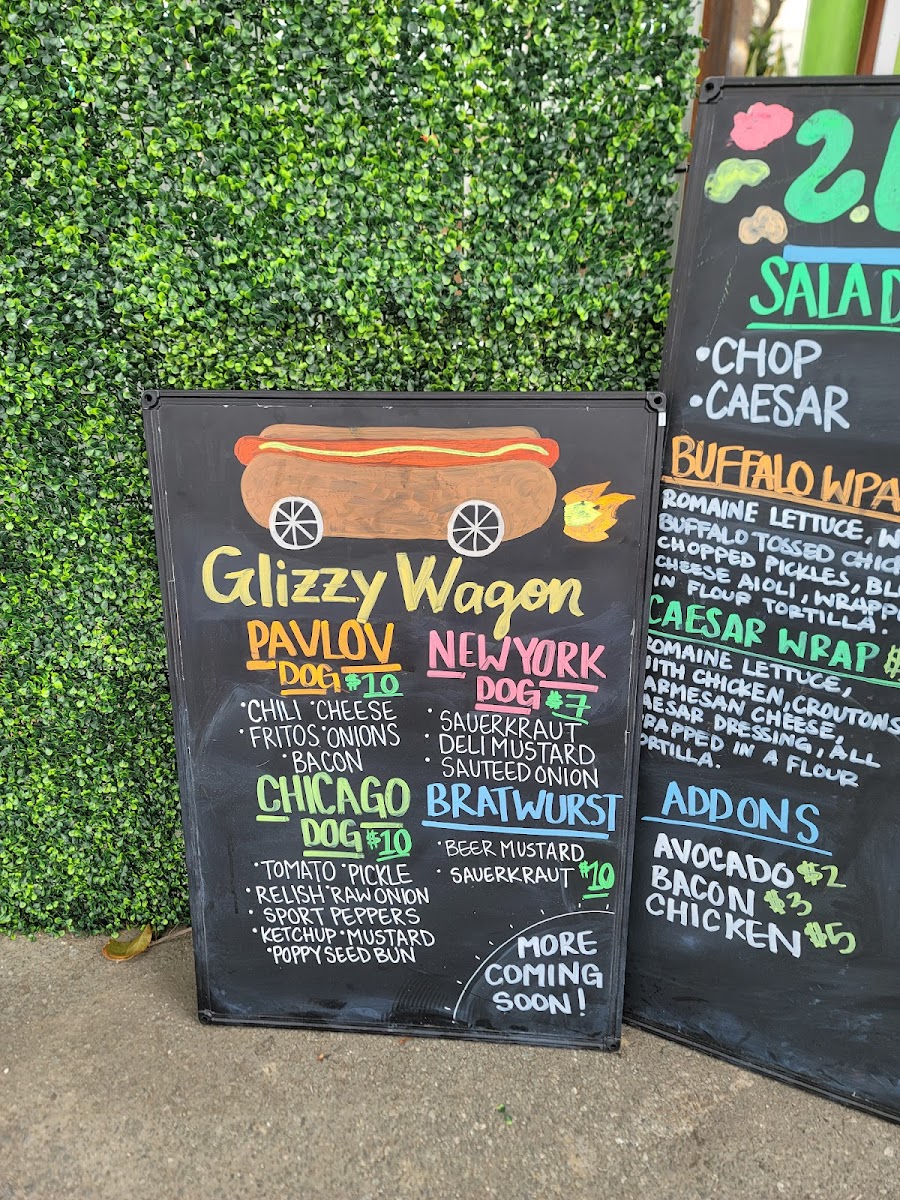 Glizzy Wagon
PAVLOV
DOG $10
•CHILI •CHEESE
•FRITOS •ONIONS
•BACON
CHICAGO
DOG $10
•TOMATO •PICKLE
•RELISH •RAW ONION
• SPORT PEPPERS
•KETCHUP •MUSTARD
•POPPY SEED BUN
NEW YORK
DOG $7
• SAUERKRAUT
• DELI MUSTARD
• SAUTEED ONION
BRATWURST
•BEER MUSTARD
• SAUERKRAUT $10
MORE
COMING
SOON!
2.
SALAD
•CHOP
•CAESAR
BUFFALO WPA
ROMAINE LETTUCE, W
BUFFALO TOSSED CHIC
CHOPPED PICKLES, BL
CHEESE AIOLI, WRAPP
IN FLOUR TORTILLA.
CAESAR WRAP $
ROMAINE LETTUCE,
WITH CHICKEN, CROUTONS
ARMESAN CHEESE,
AESAR DRESSING, ALL
RAPPED IN A FLOUR
ORTILLA.
ADD ONS
AVOCADO $2
BACON $3
CHICKEN $5